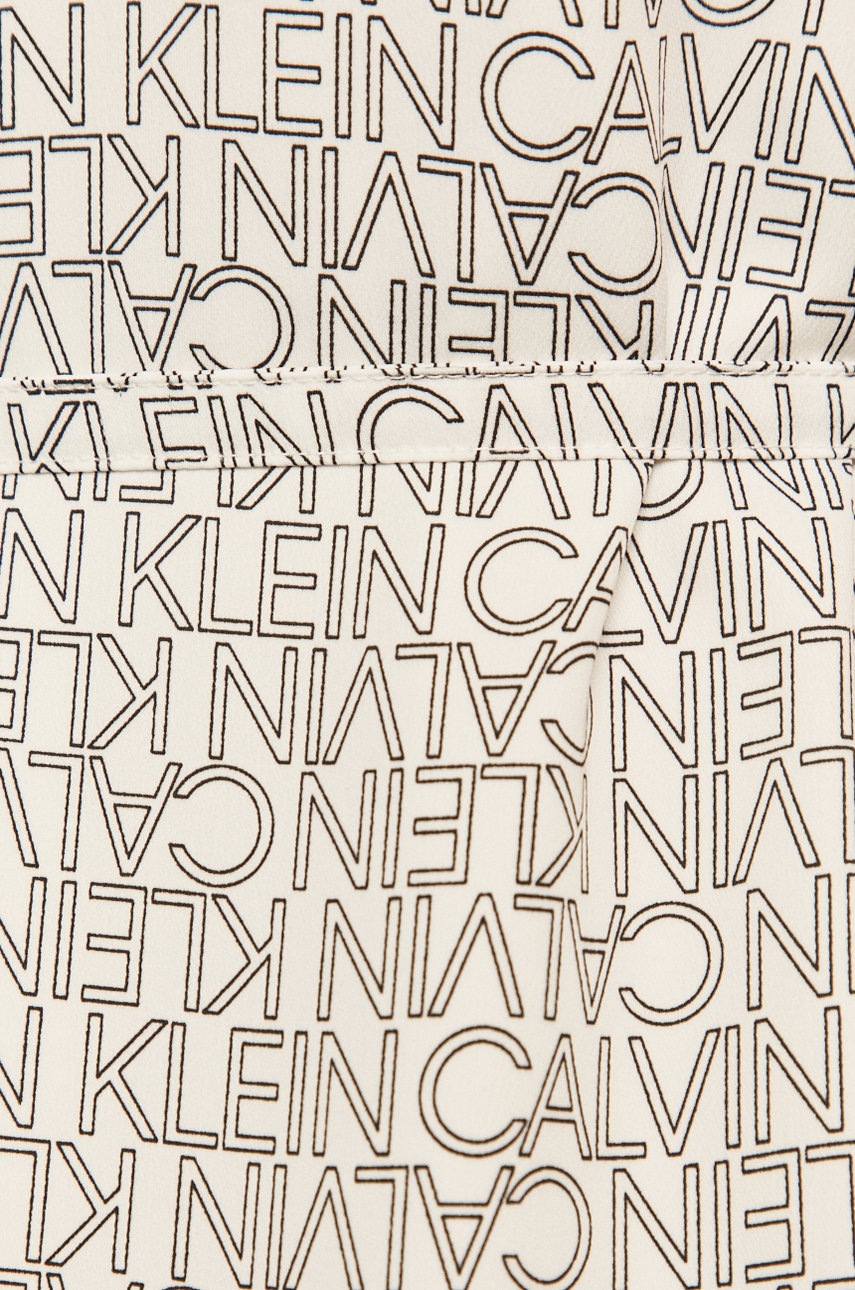 N KLEIN CALVIN
CALVIN KLEIN
CALVIN KLEIN
KLEIN CALVIN K
N KLEIN CALVIN
CALVIN KLEIN
CALVIN KLEIN
KLEIN CALVIN
N KLEIN CALVIN
CALVIN KLEIN